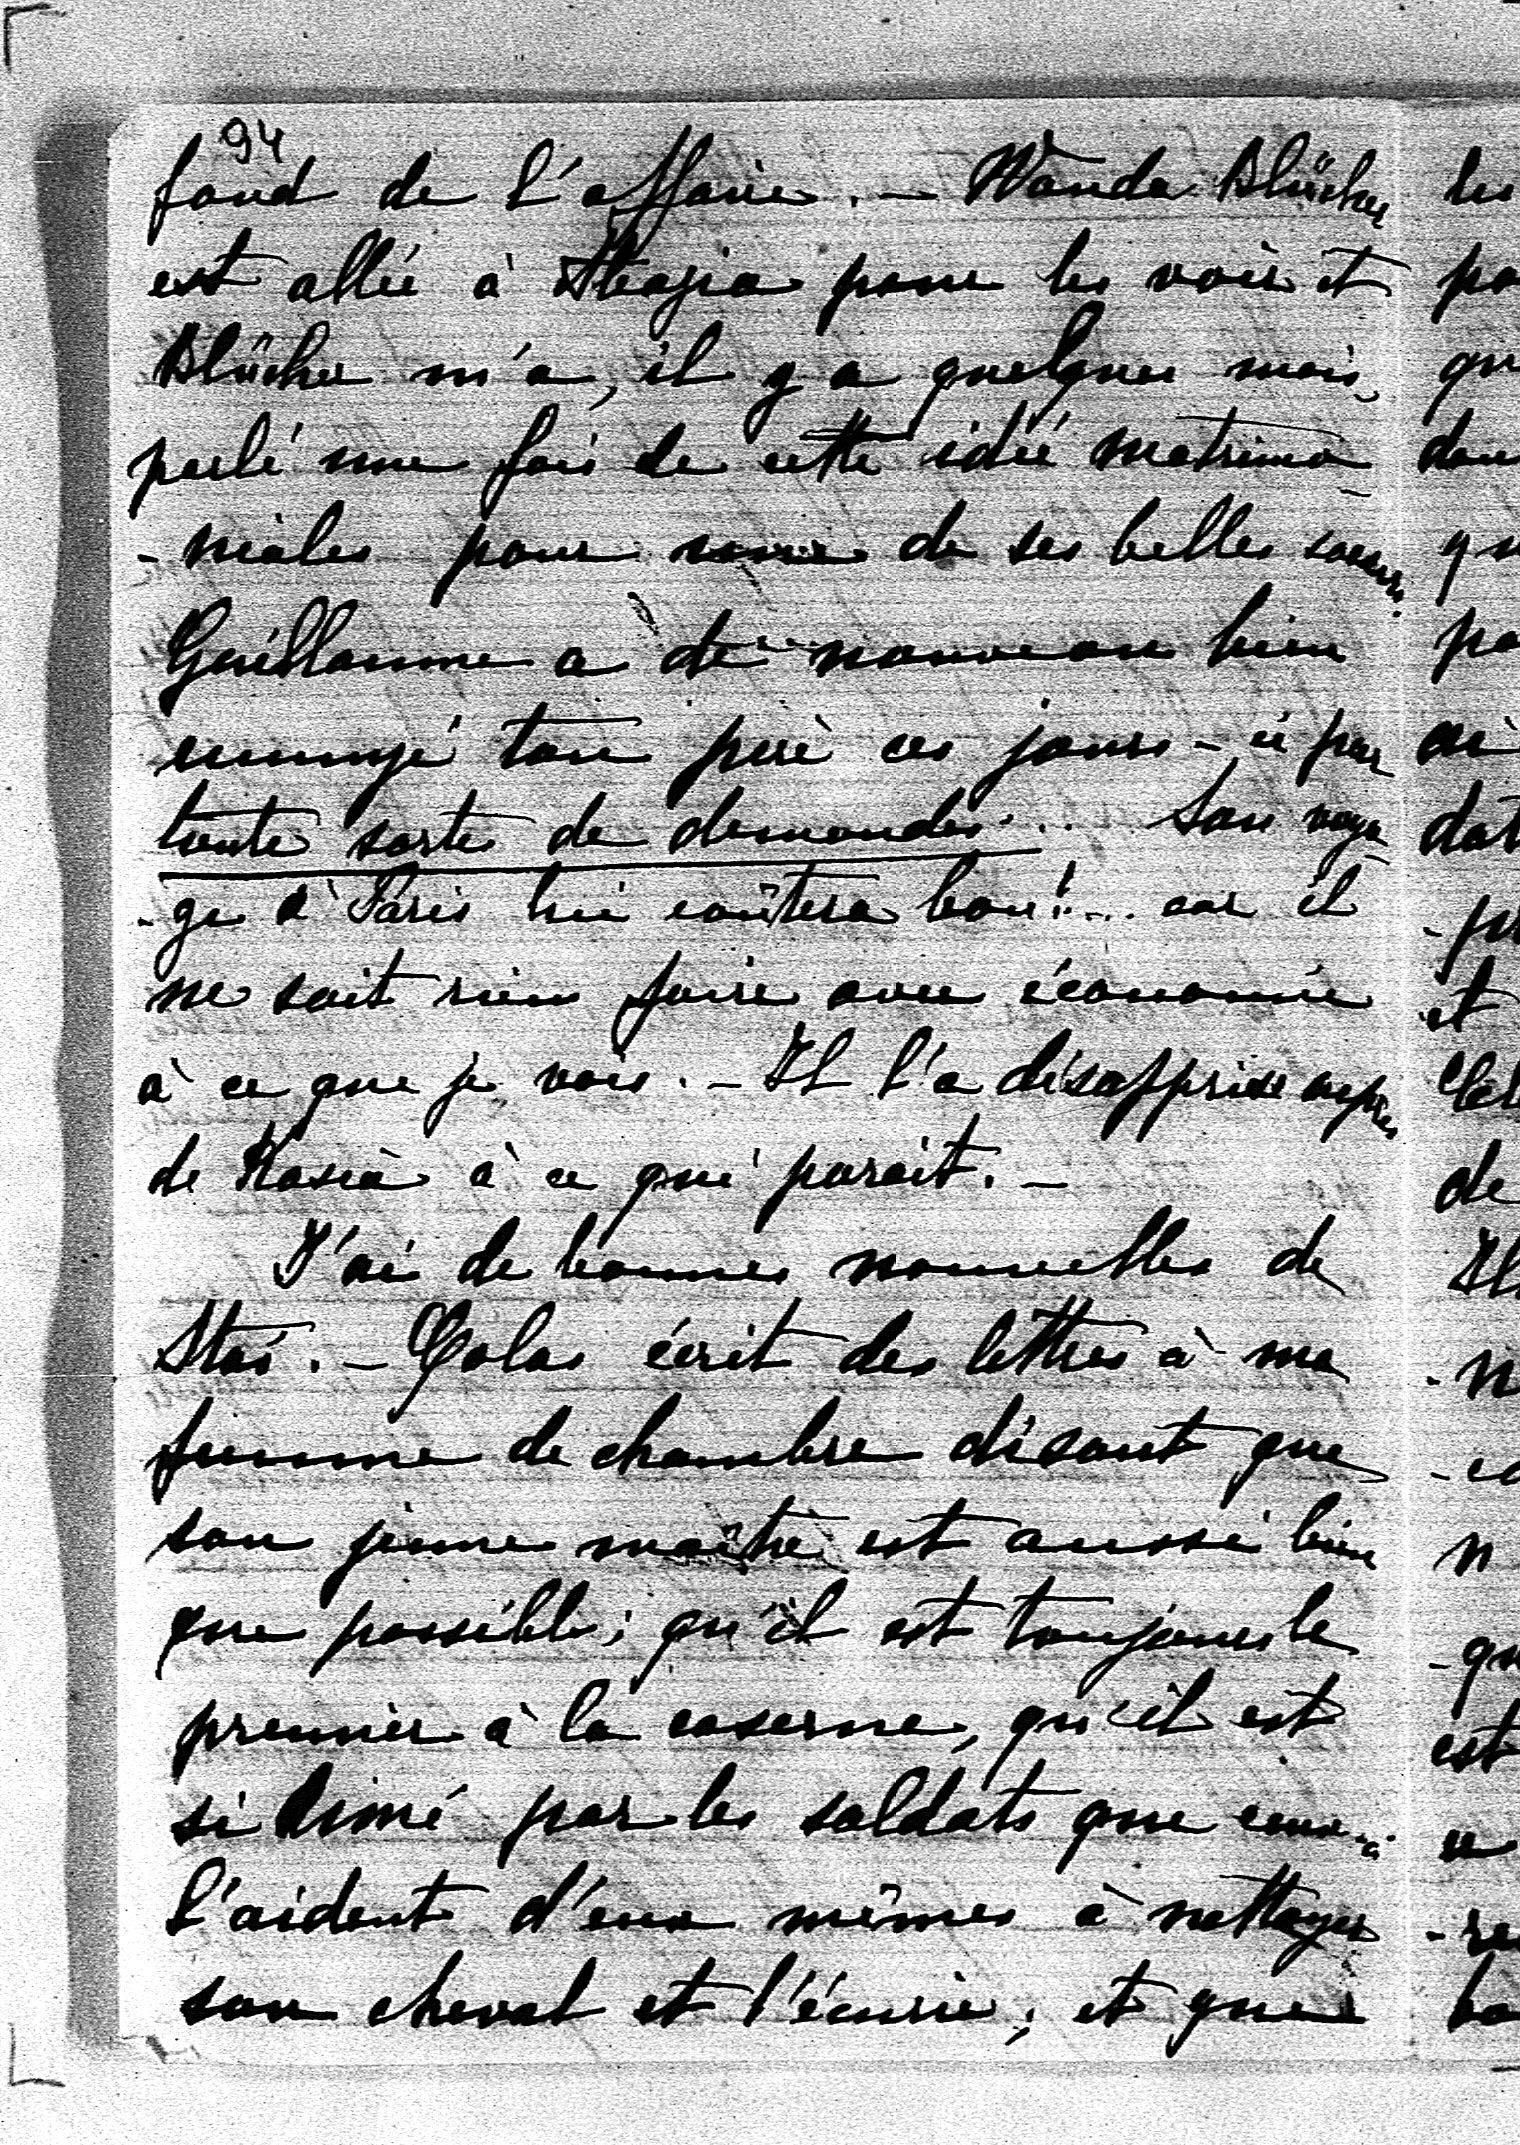 94
fond de l'affaire. — Wanda Blücher
est allée à Abazia pour les voir et
Blücher m'a, il y a quelques mois,
parlé une fois de cette idée matrimo
- niales pour une de ses belles soeurs.
Guillaume a de nouveau bien
ennuyé ton père ces jours-ci par
toute sorte de demandes... Son voya
- ge à Paris lui coûtera bon!... car il
ne sait rien faire avec économie
à ce que je vois. — Il l'a désapprise auprès
de Kasia à ce qui parait. —
J'ai de bonnes nouvelles de
Stas. — Golas écrit des lettres à ma
femme de chambre disant que
son jeune maître est aussi bien
que possible; qu'il est toujours le
premier à la caserne, qu'il est
si aimé par les soldats que ceux-ci
l'aident d'eux mêmes à nettoyer
son cheval et l'écurie; et que